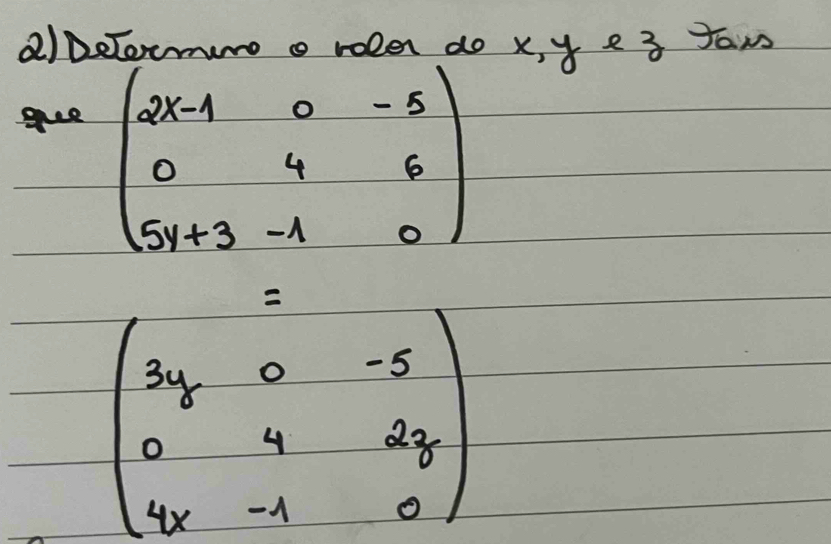 2) Determine o valor de x, y e z tais
que
2x-1 0 -5
0 4 6
5y+3 -1 0
=
3y 0 -5
0 4 2z
4x -1 0